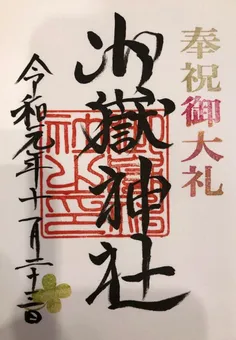 奉祝御大礼
御嶽神社
令和元年十一月二十二日